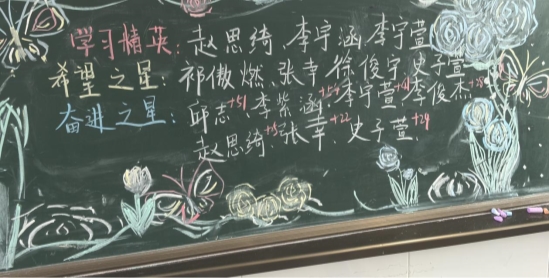 学习精英：赵思绮、李宇涵、李宇萱
希望之星：祁傲燃、张幸、徐俊宇、史子萱
奋进之星：邱志+51、李紫涵+54、李宇萱+41、李俊杰+38
赵思绮+5、张幸+22、史子萱+29